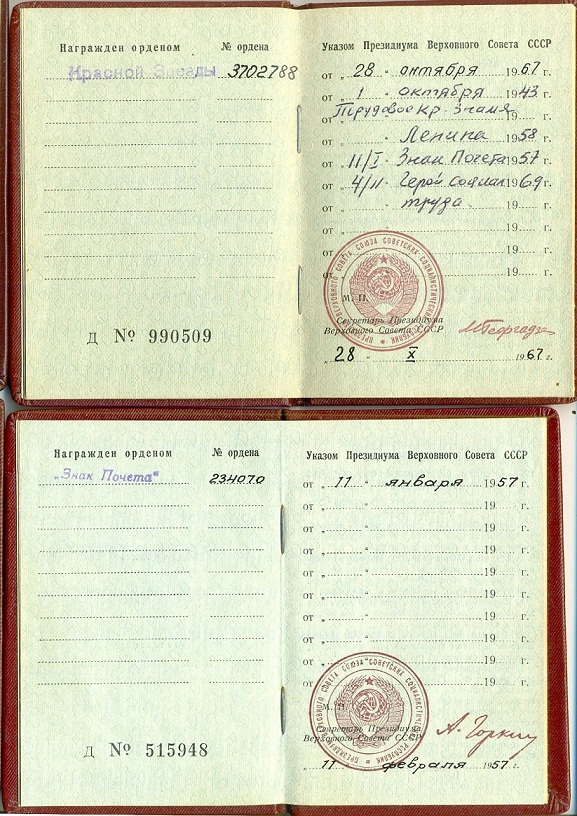 Награжден орденом № ордена
Красной Звезды 3702788
Д № 990509
Указом Президиума Верховного Совета СССР
от „ 28 " октября 1967 г.
от „ 1 " октября 1943 г.
от „ Трудовое Кр. Знамя
от „ " Ленина 1958 г.
от „ 11/I " Знак Почета 1957 г.
от „ 4/II " Герой Социал 1969 г.
от „ " труда 19 г.
от „ " 19 г.
от „ " 19 г.
от „ " 19 г.
ПРЕЗИДИУМ ВЕРХОВНОГО СОВЕТА СОЮЗА СОВЕТСКИХ СОЦИАЛИСТИЧЕСКИХ РЕСПУБЛИК
М. П.
Секретарь Президиума
Верховного Совета СССР М Георгадзе
„ 28 " X 1967 г.
Награжден орденом № ордена
„Знак Почета" 234070
Д № 515948
Указом Президиума Верховного Совета СССР
от „ 11 " января 1957 г.
от „ " 19 г.
от „ " 19 г.
от „ " 19 г.
от „ " 19 г.
от „ " 19 г.
от „ " 19 г.
от „ " 19 г.
от „ " 19 г.
от „ " 19 г.
ПРЕЗИДИУМ ВЕРХОВНОГО СОВЕТА СОЮЗА СОВЕТСКИХ СОЦИАЛИСТИЧЕСКИХ РЕСПУБЛИК
М. П.
Секретарь Президиума
Верховного Совета СССР А. Горкин
„ 11 " февраля 1957 г.